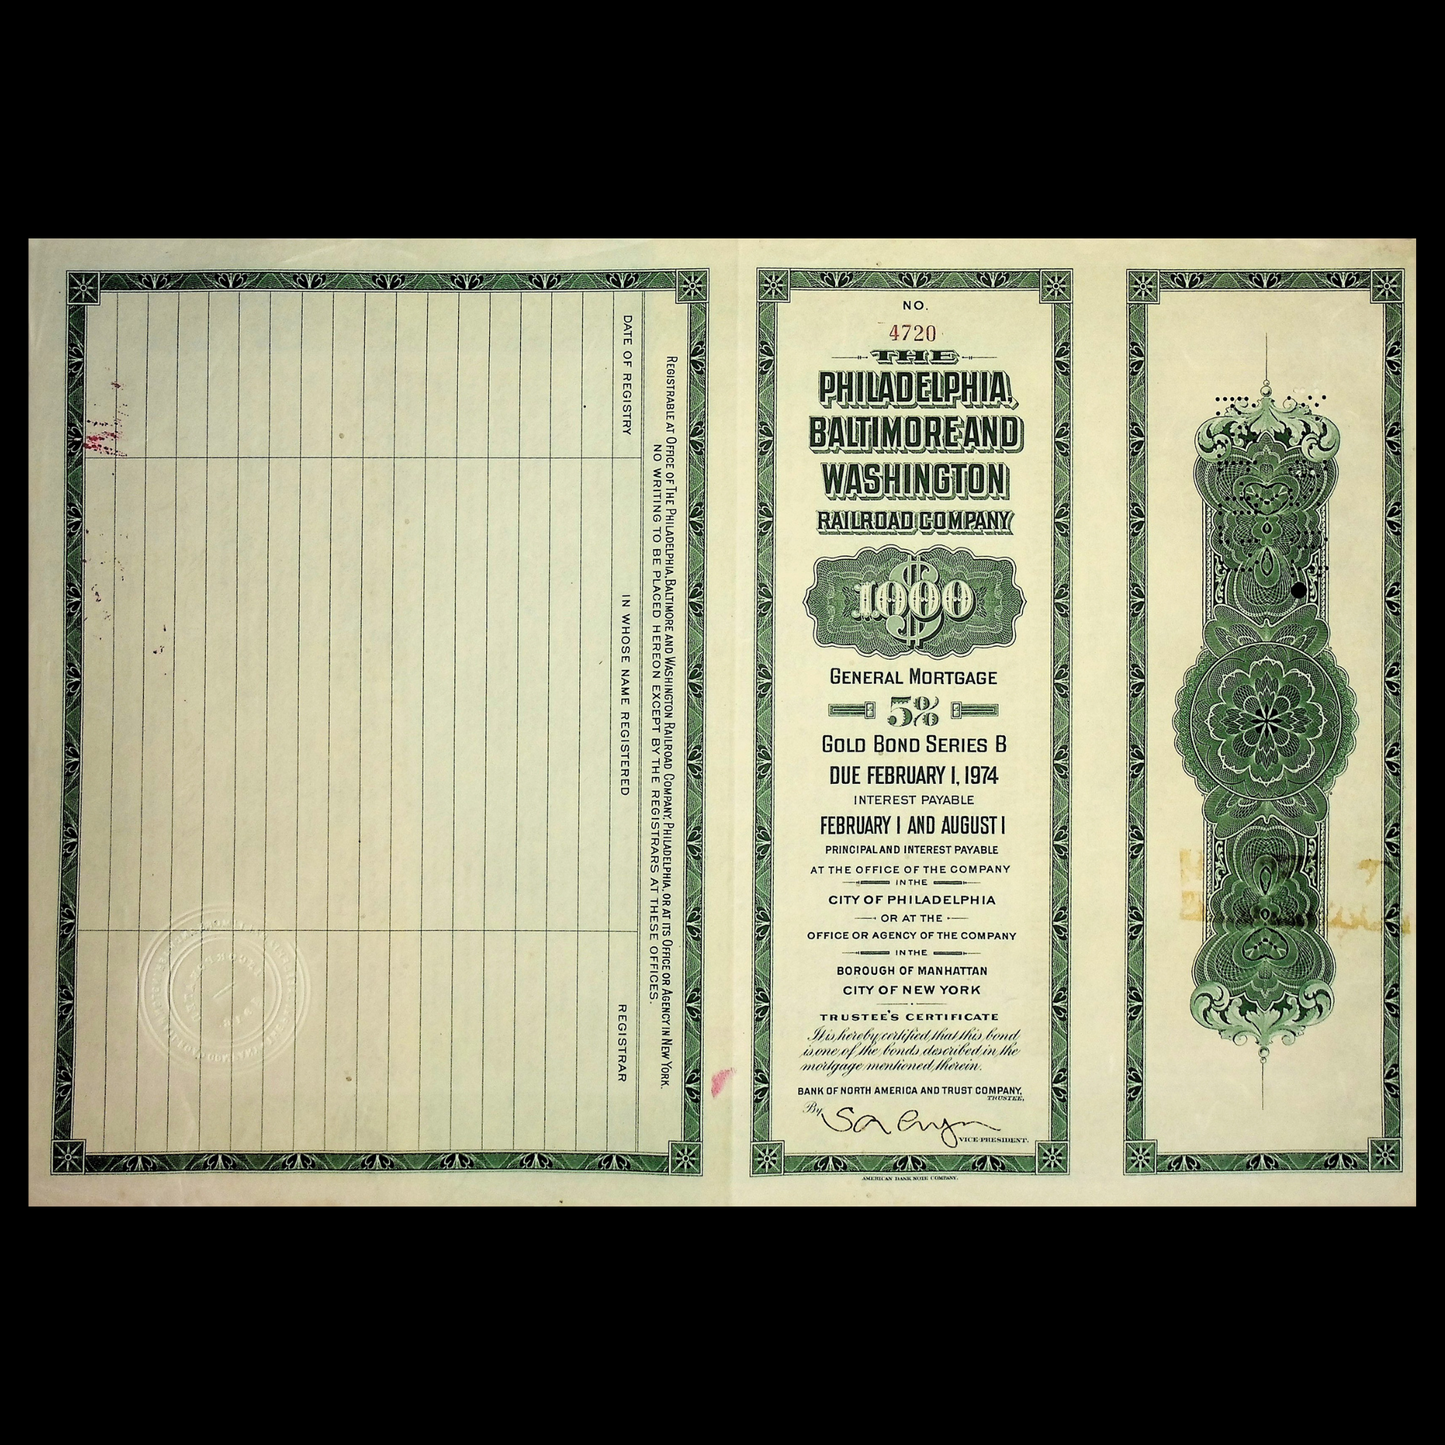 REGISTRABLE AT OFFICE OF THE PHILADELPHIA, BALTIMORE AND WASHINGTON RAILROAD COMPANY, PHILADELPHIA, OR AT ITS OFFICE OR AGENCY IN NEW YORK.
NO WRITING TO BE PLACED HEREON EXCEPT BY THE REGISTRARS AT THESE OFFICES.
DATE OF REGISTRY
IN WHOSE NAME REGISTERED
REGISTRAR
NO.
4720
THE
PHILADELPHIA,
BALTIMORE AND
WASHINGTON
RAILROAD COMPANY
$1000
GENERAL MORTGAGE
5%
GOLD BOND SERIES B
DUE FEBRUARY 1, 1974
INTEREST PAYABLE
FEBRUARY 1 AND AUGUST 1
PRINCIPAL AND INTEREST PAYABLE
AT THE OFFICE OF THE COMPANY
IN THE
CITY OF PHILADELPHIA
OR AT THE
OFFICE OR AGENCY OF THE COMPANY
IN THE
BOROUGH OF MANHATTAN
CITY OF NEW YORK
TRUSTEE'S CERTIFICATE
It is hereby certified that this bond
is one of the bonds described in the
mortgage mentioned therein.
BANK OF NORTH AMERICA AND TRUST COMPANY,
TRUSTEE,
By
VICE-PRESIDENT.
AMERICAN BANK NOTE COMPANY.